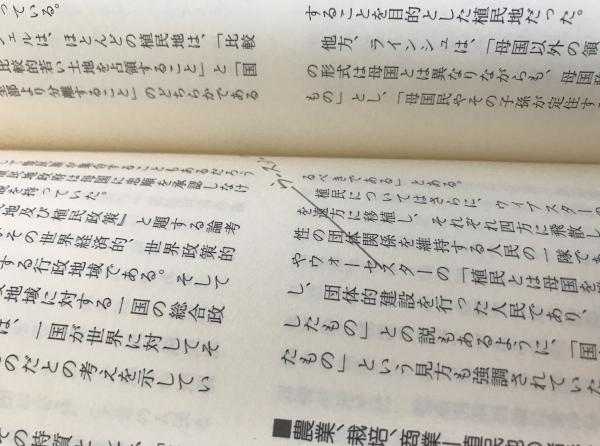 っている。
フェルは、ほとんどの植民地は、「比較
比較的若い土地を占領すること」と「国
全部より分離すること」のどちらかである
することを目的とした植民地だった。
他方、ラインシュは、「母国以外の領
の形式は母国とは異なりながらも、母国
もの」とし、「母国民やその子孫が定住す
して他民族が集合することもあるだろう
植民地政府は母国に忠順を承認しなけ
徴を持っていた。
地及び植民政策』と題する論考
その世界経済的、世界政策的
する行政地域である。そして
地域に対する一国の総合政
は、一国が世界に対してそ
のだとの考えを示してい
の特質と
るべきである」とある。
植民についてはさらに、ウィブスターの
を遠方に移植し、それぞれ四方に飛散し
性の団体関係を維持する人民の一隊であ
やウォーセスターの「植民とは母国を
し、団体的建設を行った人民であり、
したもの」との説もあるように、「国
たもの」という見方も強調されていた
■農業、栽培、商業